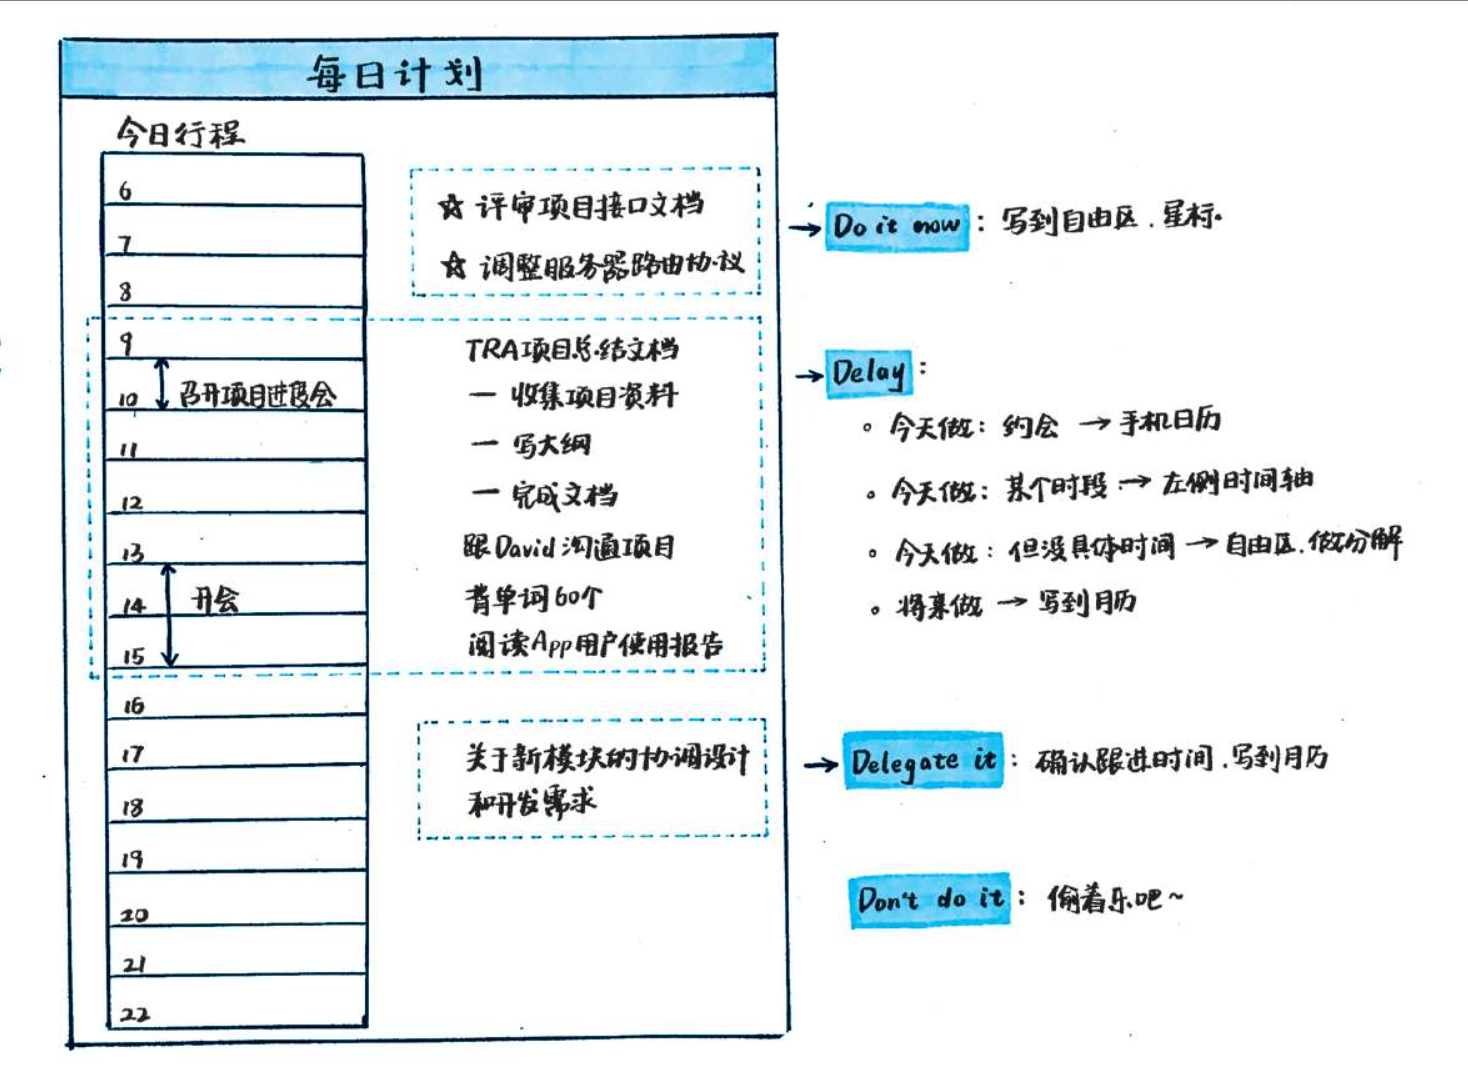 每日计划
今日行程
6
7
8
9
10 召开项目进段会
11
12
13
14 开会
15
16
17
18
19
20
21
22
☆ 评审项目接口文档
☆ 调整服务器路由协议
TRA项目总结文档
— 收集项目资料
— 写大纲
— 完成文档
跟David沟通项目
背单词60个
阅读App用户使用报告
关于新模块的协调设计
和开发需求
→ Do it now : 写到自由区.星标.
→ Delay :
。今天做: 约会 → 手机日历
。今天做: 某个时段 → 左侧时间轴
。今天做: 但没具体时间 → 自由区.做分解
。将来做 → 写到月历
→ Delegate it : 确认跟进时间.写到月历
Don't do it : 偷着乐吧~